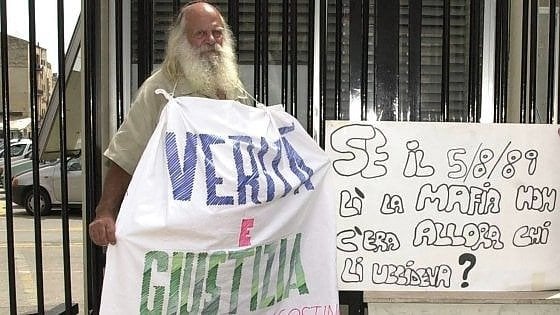 VERITÀ
E
GIUSTIZIA
AGOSTIN
SE IL 5/8/89
LÌ LA MAFIA NON
C'ERA ALLORA CHI
LI UCCIDEVA?